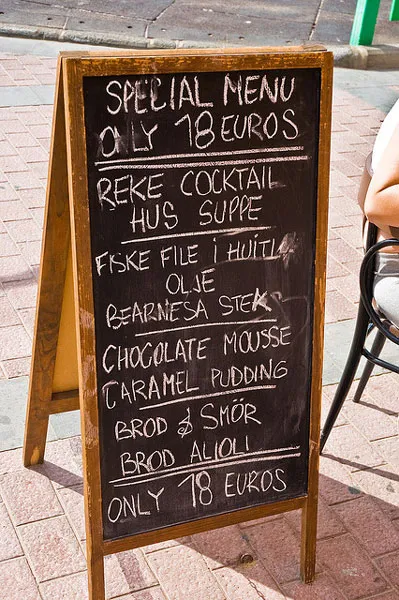 SPECIAL MENU
ONLY 18 EUROS
REKE COCKTAIL
HUS SUPPE
FISKE FILE i HUITL
OLJE
BEARNESA STEK
CHOCOLATE MOUSSE
CARAMEL PUDDING
BROD & SMÖR
BROD ALIOLI
ONLY 18 EUROS